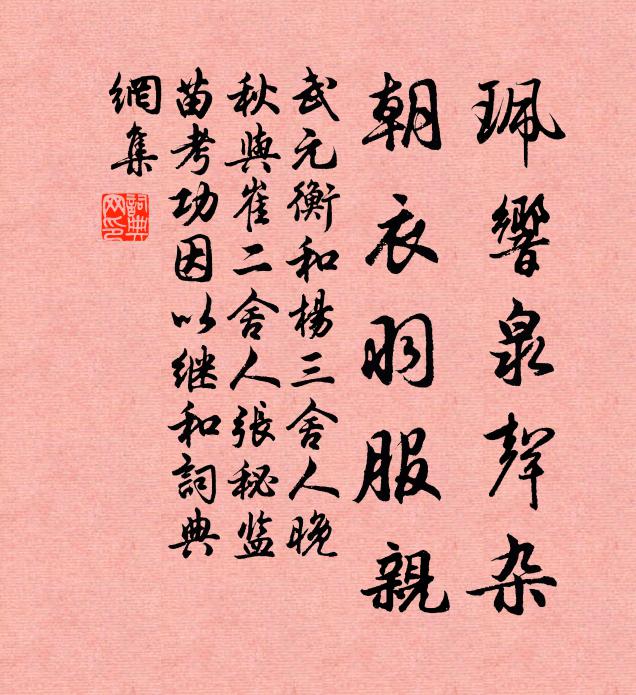 珮響泉聲杂
朝衣羽服親
武元衡和楊三舍人晚
秋與崔二舍人張秘监
苗考功因以继和詞典
網集
詞典
网印